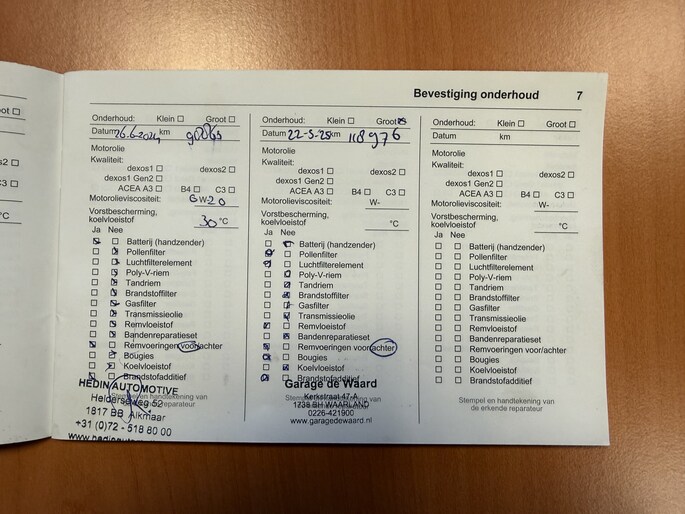 Bevestiging onderhoud 7
Onderhoud: Klein ☐ Groot ☐
Datum 26.6.2024 km
Motorolie
Kwaliteit:
dexos1 ☐ dexos2 ☐
dexos1 Gen2 ☐
ACEA A3 ☐ B4 ☐ C3 ☐
Motorolieviscositeit: 0W-20
Vorstbescherming,
koelvloeistof 30 °C
Ja Nee
Batterij (handzender)
Pollenfilter
Luchtfilterelement
Poly-V-riem
Tandriem
Brandstoffilter
Gasfilter
Transmissieolie
Remvloeistof
Bandenreparatieset
Remvoeringen voor/achter
Bougies
Koelvloeistof
Brandstofadditief
HEDIN AUTOMOTIVE
Stempel en handtekening van
de erkende reparateur
Helderseweg 52
1817 BB Alkmaar
+31 (0)72 - 518 80 00
Onderhoud: Klein ☐ Groot
Datum 22-5-25 km 118976
Motorolie
Kwaliteit:
dexos1 ☐ dexos2 ☐
dexos1 Gen2 ☐
ACEA A3 ☐ B4 ☐ C3 ☐
Motorolieviscositeit: W-
Vorstbescherming,
koelvloeistof °C
Ja Nee
Batterij (handzender)
Pollenfilter
Luchtfilterelement
Poly-V-riem
Tandriem
Brandstoffilter
Gasfilter
Transmissieolie
Remvloeistof
Bandenreparatieset
Remvoeringen voor/achter
Bougies
Koelvloeistof
Brandstofadditief
Garage de Waard
Kerkstraat 47-A
1738 BH WAARLAND
0226-421900
www.garagedewaard.nl
Onderhoud: Klein ☐ Groot ☐
Datum km
Motorolie
Kwaliteit:
dexos1 ☐ dexos2 ☐
dexos1 Gen2 ☐
ACEA A3 ☐ B4 ☐ C3 ☐
Motorolieviscositeit: W-
Vorstbescherming,
koelvloeistof °C
Ja Nee
☐ ☐ Batterij (handzender)
☐ ☐ Pollenfilter
☐ ☐ Luchtfilterelement
☐ ☐ Poly-V-riem
☐ ☐ Tandriem
☐ ☐ Brandstoffilter
☐ ☐ Gasfilter
☐ ☐ Transmissieolie
☐ ☐ Remvloeistof
☐ ☐ Bandenreparatieset
☐ ☐ Remvoeringen voor/achter
☐ ☐ Bougies
☐ ☐ Koelvloeistof
☐ ☐ Brandstofadditief
Stempel en handtekening van
de erkende reparateur